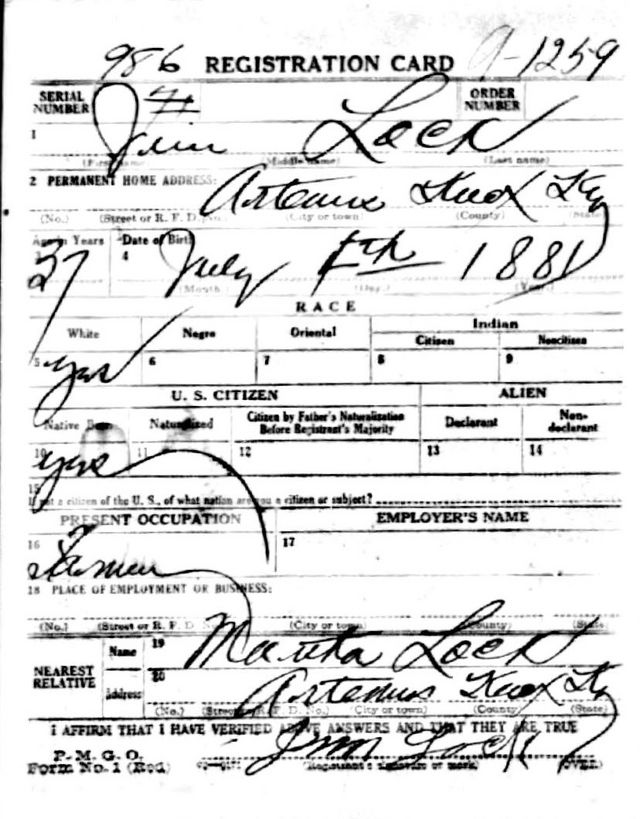 986 REGISTRATION CARD A-1259
SERIAL NUMBER ORDER NUMBER
1 Jim Lock
(First name) (Middle name) (Last name)
2 PERMANENT HOME ADDRESS: Artemus Knox Ky
(No.) (Street or R. F. D. No.) (City or town) (County) (State)
Age in Years Date of Birth
3 37 4 July 1881
(Month.) (Day.) (Year.)
RACE
White Negro Oriental Indian
Citizen Noncitizen
5 yes 6 7 8 9
U. S. CITIZEN ALIEN
Native Born Naturalized Citizen by Father's Naturalization Before Registrant's Majority Declarant Non-declarant
10 yes 11 12 13 14
15 If not a citizen of the U. S., of what nation are you a citizen or subject?
PRESENT OCCUPATION EMPLOYER'S NAME
16 Farmer 17
18 PLACE OF EMPLOYMENT OR BUSINESS:
(No.) (Street or R. F. D. No.) (City or town) (County) (State)
NEAREST RELATIVE Name 19 Martha Lock
Address 20 Artemus Knox Ky
(No.) (Street or R. F. D. No.) (City or town) (County) (State)
I AFFIRM THAT I HAVE VERIFIED ABOVE ANSWERS AND THAT THEY ARE TRUE
P. M. G. O.
Form No. 1 (Red) Jim Lock
(Registrant's signature or mark) (OVER)